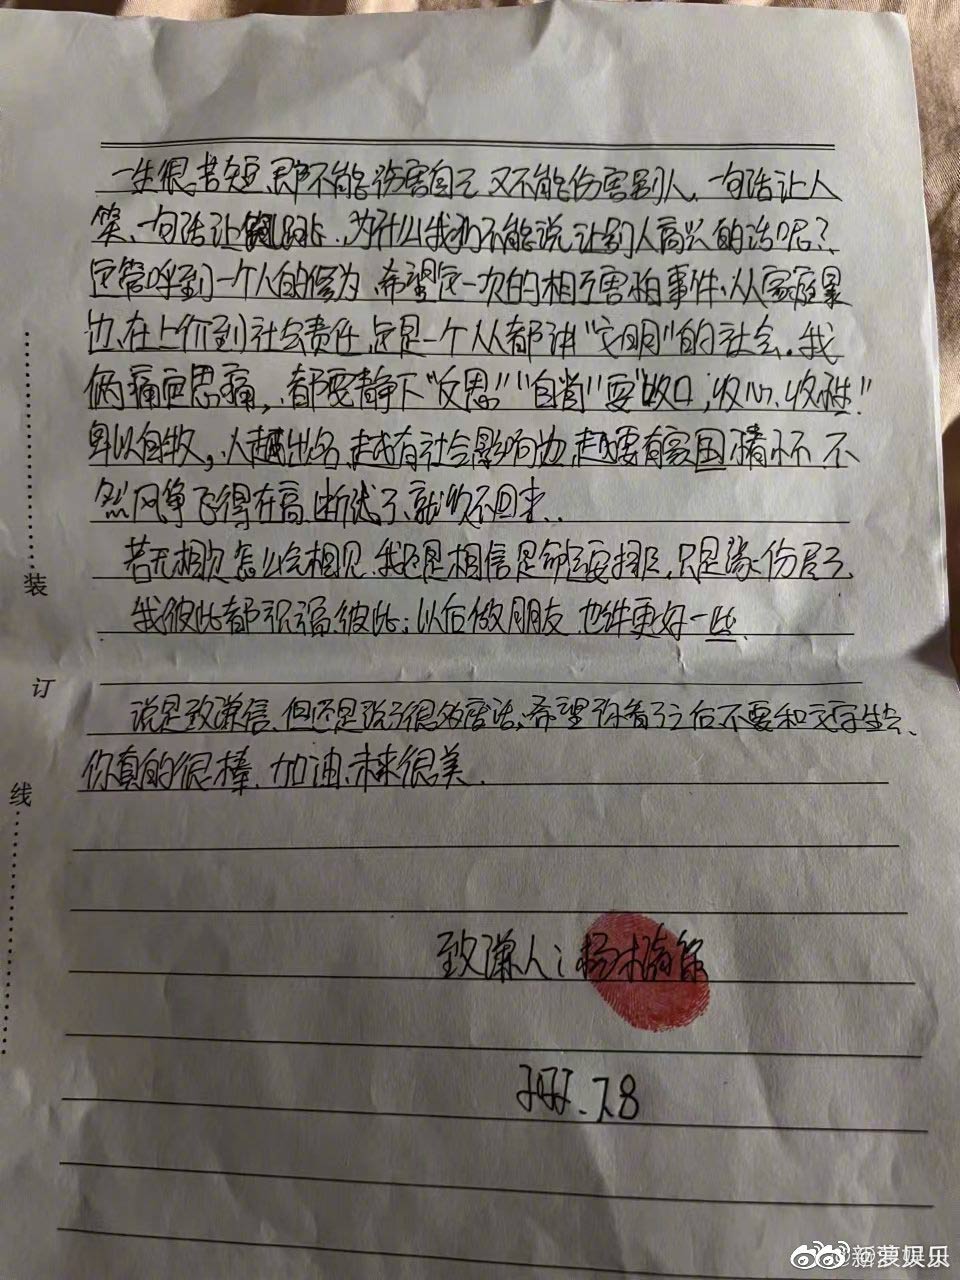 一生很苦短,即不能伤害自己 又不能伤害别人,一句话让人
笑、一句话让跳,为什么我们不能说让别人高兴的话呢?
定管呼到一个人的修为,希望这一次的相互害怕事件,从家庭
边,在上价到社会责任,这是一个人人都讲“文明”的社会。我
俩痛定思痛,都要静下“反思”“自省”要“收口,收心、收性”
卑以自牧,人越出名,越有社会影响力,越要有家国情怀 不
然风争飞得在高,断线了、就收不回来。
若无相欠,怎么会相见,我还是相信是命运安排,只是缘份尽了、
我彼此都祝福彼此;以后做朋友,也许更好一些
说是致谦信,但还是说了很多废话,希望你看了之后不要和文字生气、
你真的很棒,加油,未来很美.
致谦人:
7.8
装
订
线
新萝娱乐